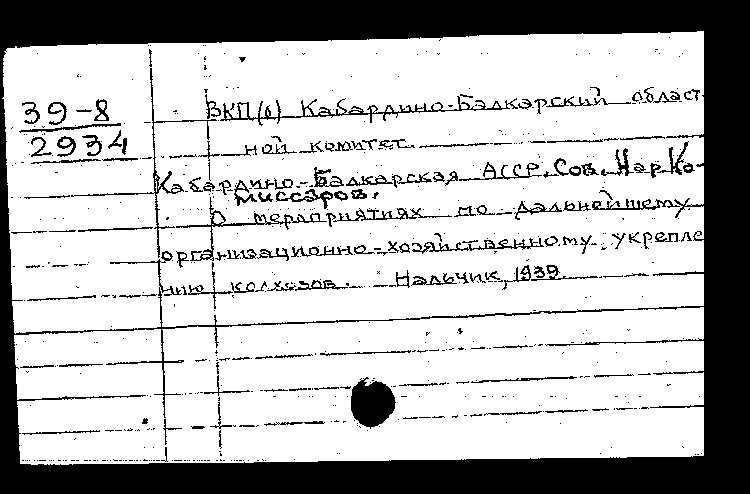 39-8
2934
ВКП(б) Кабардино-Балкарский област-
ной комитет.
Кабардино-Балкарская АССР. Сов. Нар Ко-
миссаров.
О мероприятиях по дальнейшему
организационно-хозяйственному укрепле
нию колхозов. Нальчик, 1939.